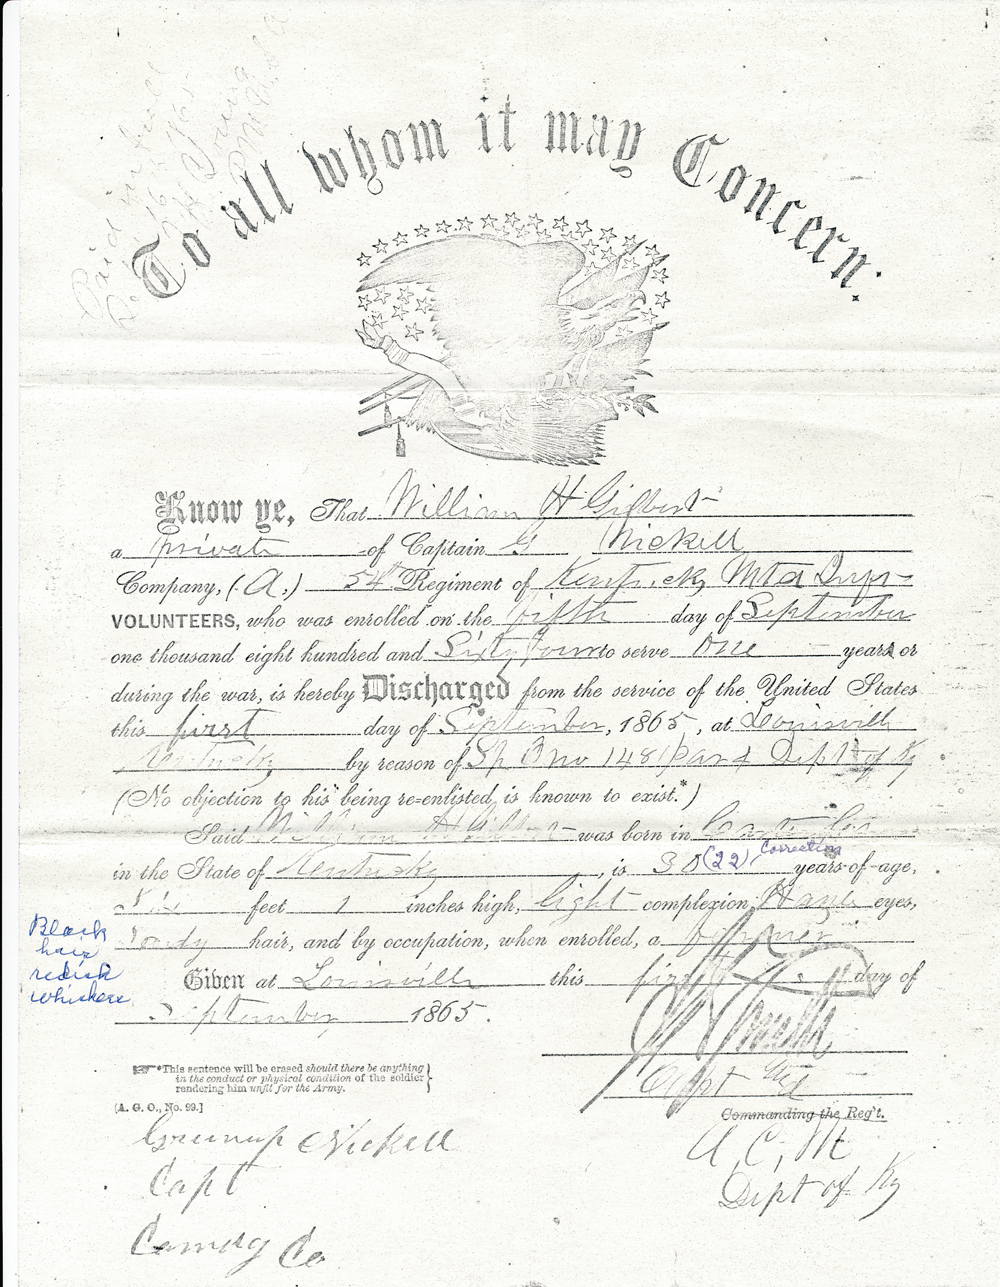 Paid in full
To all whom it may Concern:
Know ye, That William H Gilbert
a private of Captain G Nickell
Company, (A,) 54th Regiment of Kentucky Mtd Infy
VOLUNTEERS, who was enrolled on the fifth day of September
one thousand eight hundred and Sixty Four to serve one years or
during the war, is hereby Discharged from the service of the United States
this first day of September, 1865, at Louisville
Kentucky by reason of Sp O no 148 Par 4 Dept of Ky
(No objection to his being re-enlisted is known to exist.*)
Said William H Gilbert was born in Carter Co
in the State of Kentucky, is 30 (22) Correction years of age,
Six feet 1 inches high, light complexion, Hazle eyes,
hair, and by occupation, when enrolled, a farmer
Black
hair
redish
whiskers
Given at Louisville this first day of
September 1865.
*This sentence will be erased should there be anything
in the conduct or physical condition of the soldier
rendering him unfit for the Army.
[A. G. O., No. 99.]
Capt
Commanding the Reg't.
Greenup Nickell
Capt
Comdg Co
A. C. M
Dept of Ky